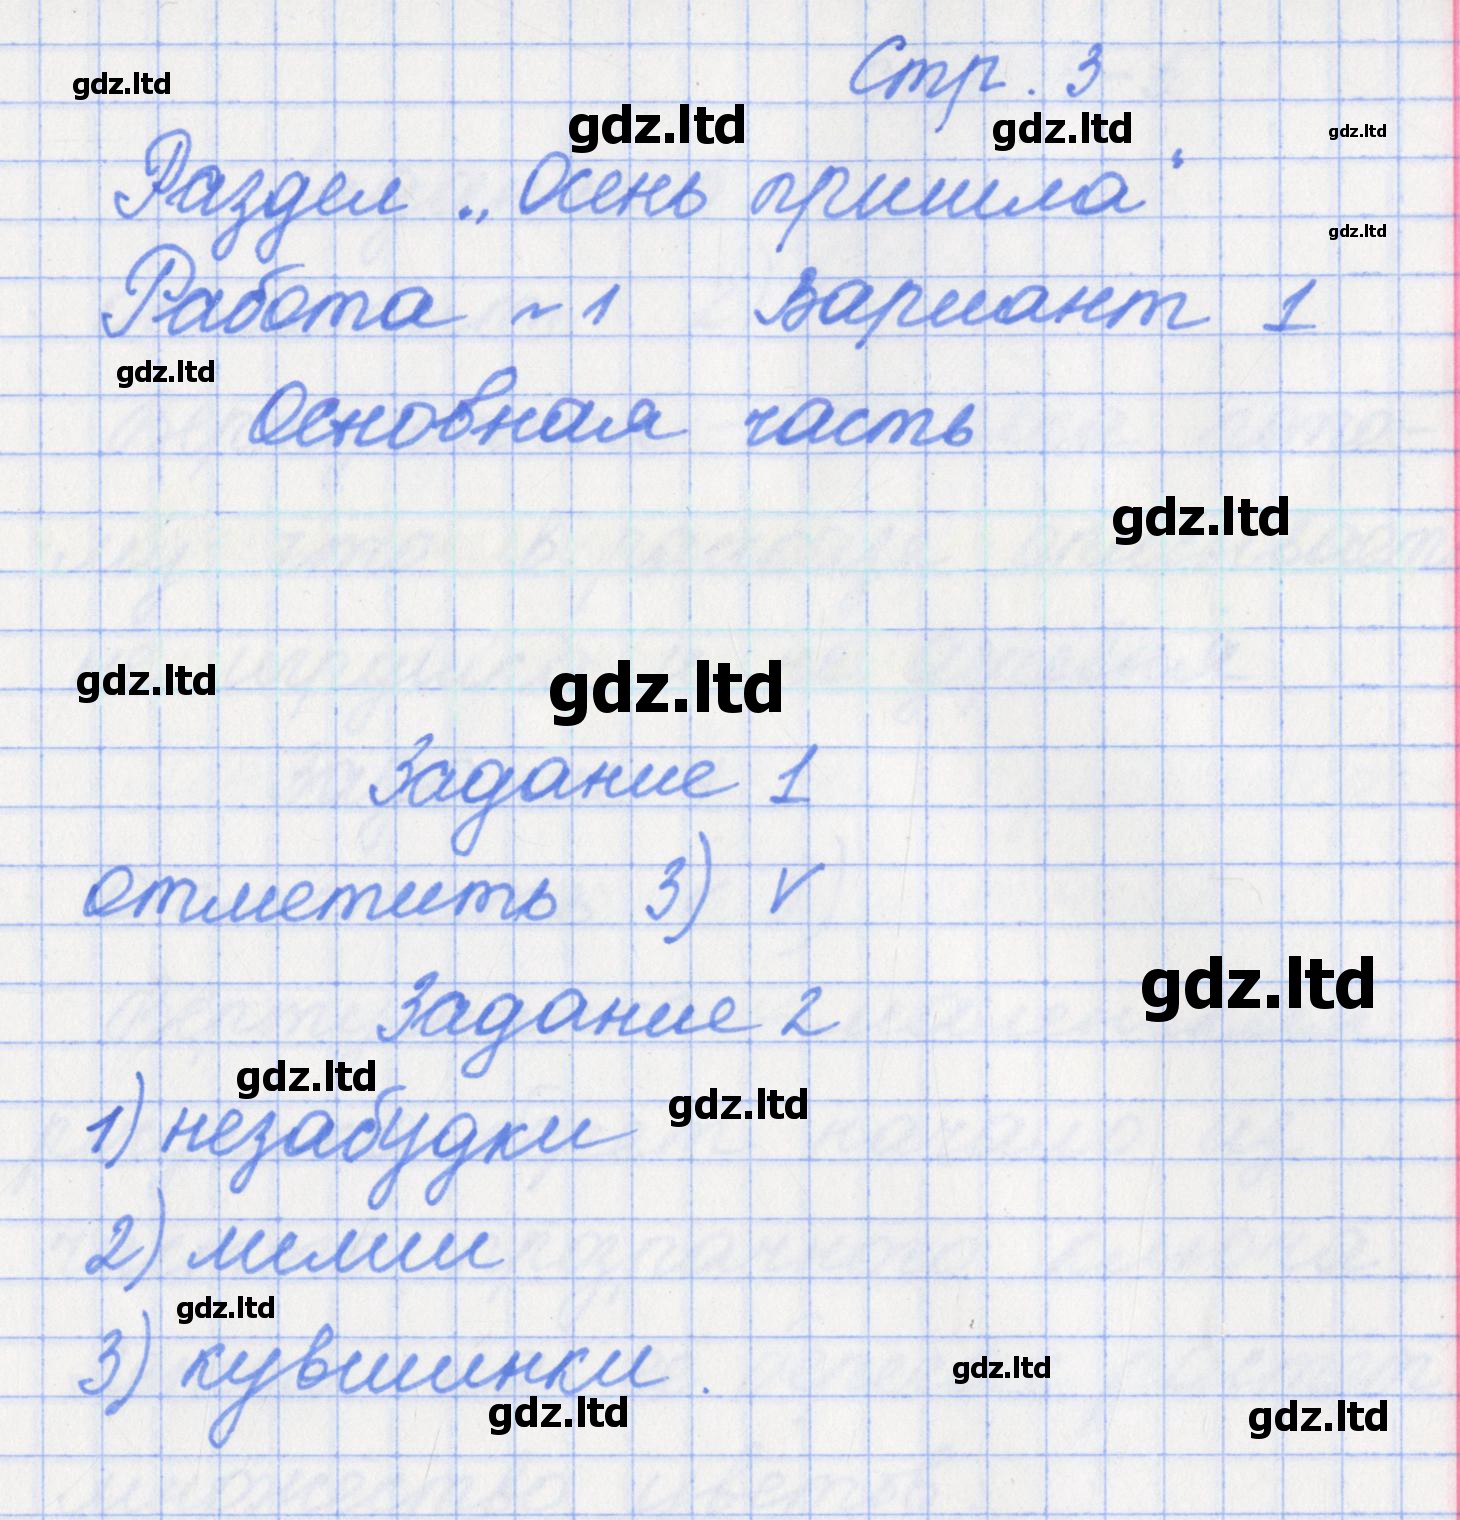 Стр. 3
gdz.ltd
gdz.ltd
gdz.ltd
gdz.ltd
Раздел „Осень пришла“
gdz.ltd
Работа №1 Вариант 1
gdz.ltd
Основная часть
gdz.ltd
gdz.ltd
gdz.ltd
Задание 1
отметить 3) V
gdz.ltd
Задание 2
gdz.ltd
gdz.ltd
1) незабудки
2) лилии
gdz.ltd
3) кувшинки.
gdz.ltd
gdz.ltd
gdz.ltd